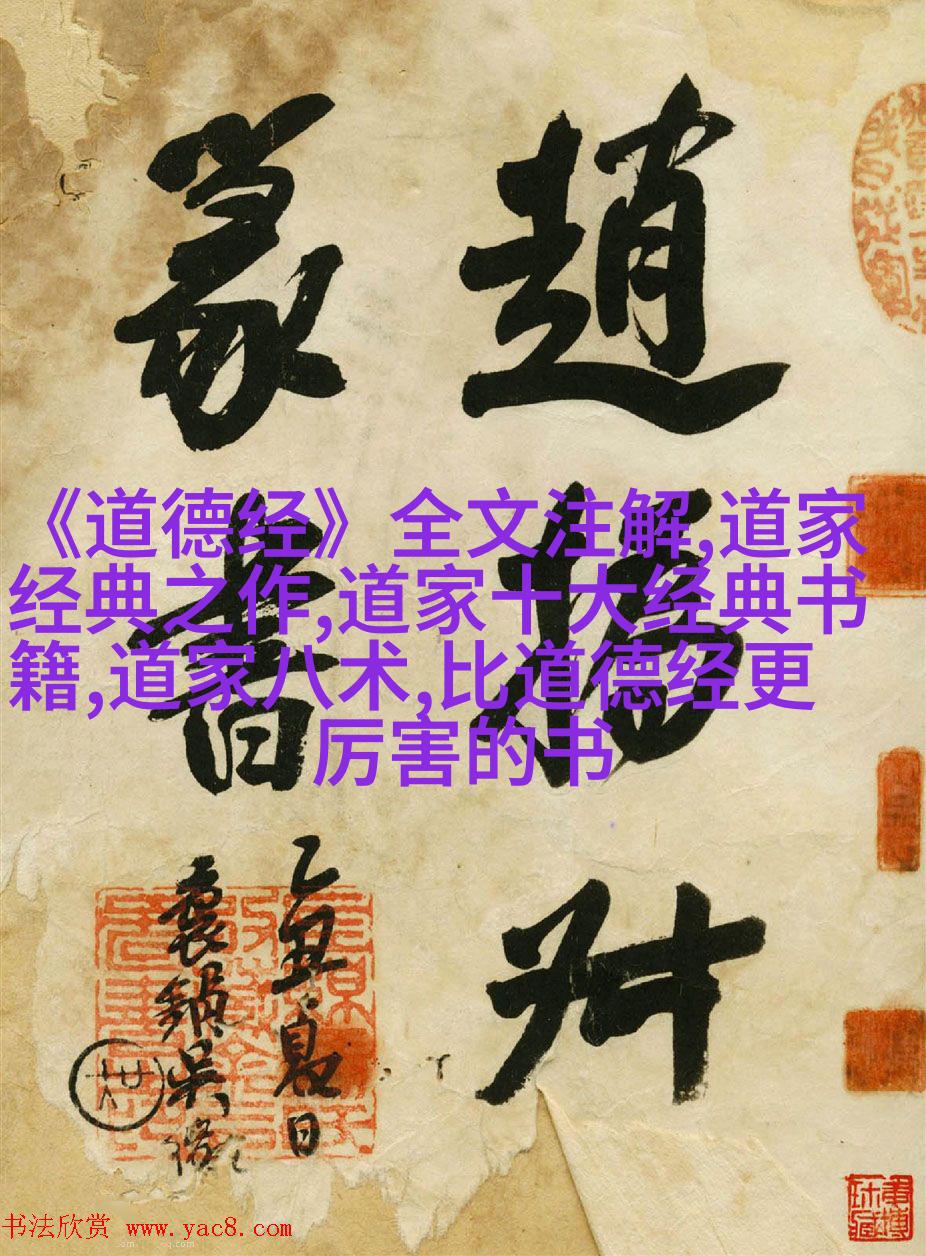 趙撝叔
篆書
《道德经》全文注解,道家
经典之作,道家十大经典书
籍,道家八术,比道德经更
厉害的书
乙亥夏日
书法欣赏 www.yac8.com